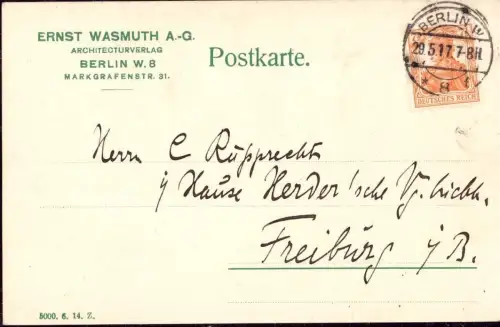 ERNST WASMUTH A.-G.
ARCHITECTURVERLAG
BERLIN W. 8
MARKGRAFENSTR. 31.
Postkarte.
BERLIN W
29.5.17. 7-8N.
* 8 f
DEUTSCHES REICH
Herrn C Rupprecht
i/ Hause Herder'sche
Freiburg i/B.
5000. 6. 14. Z.